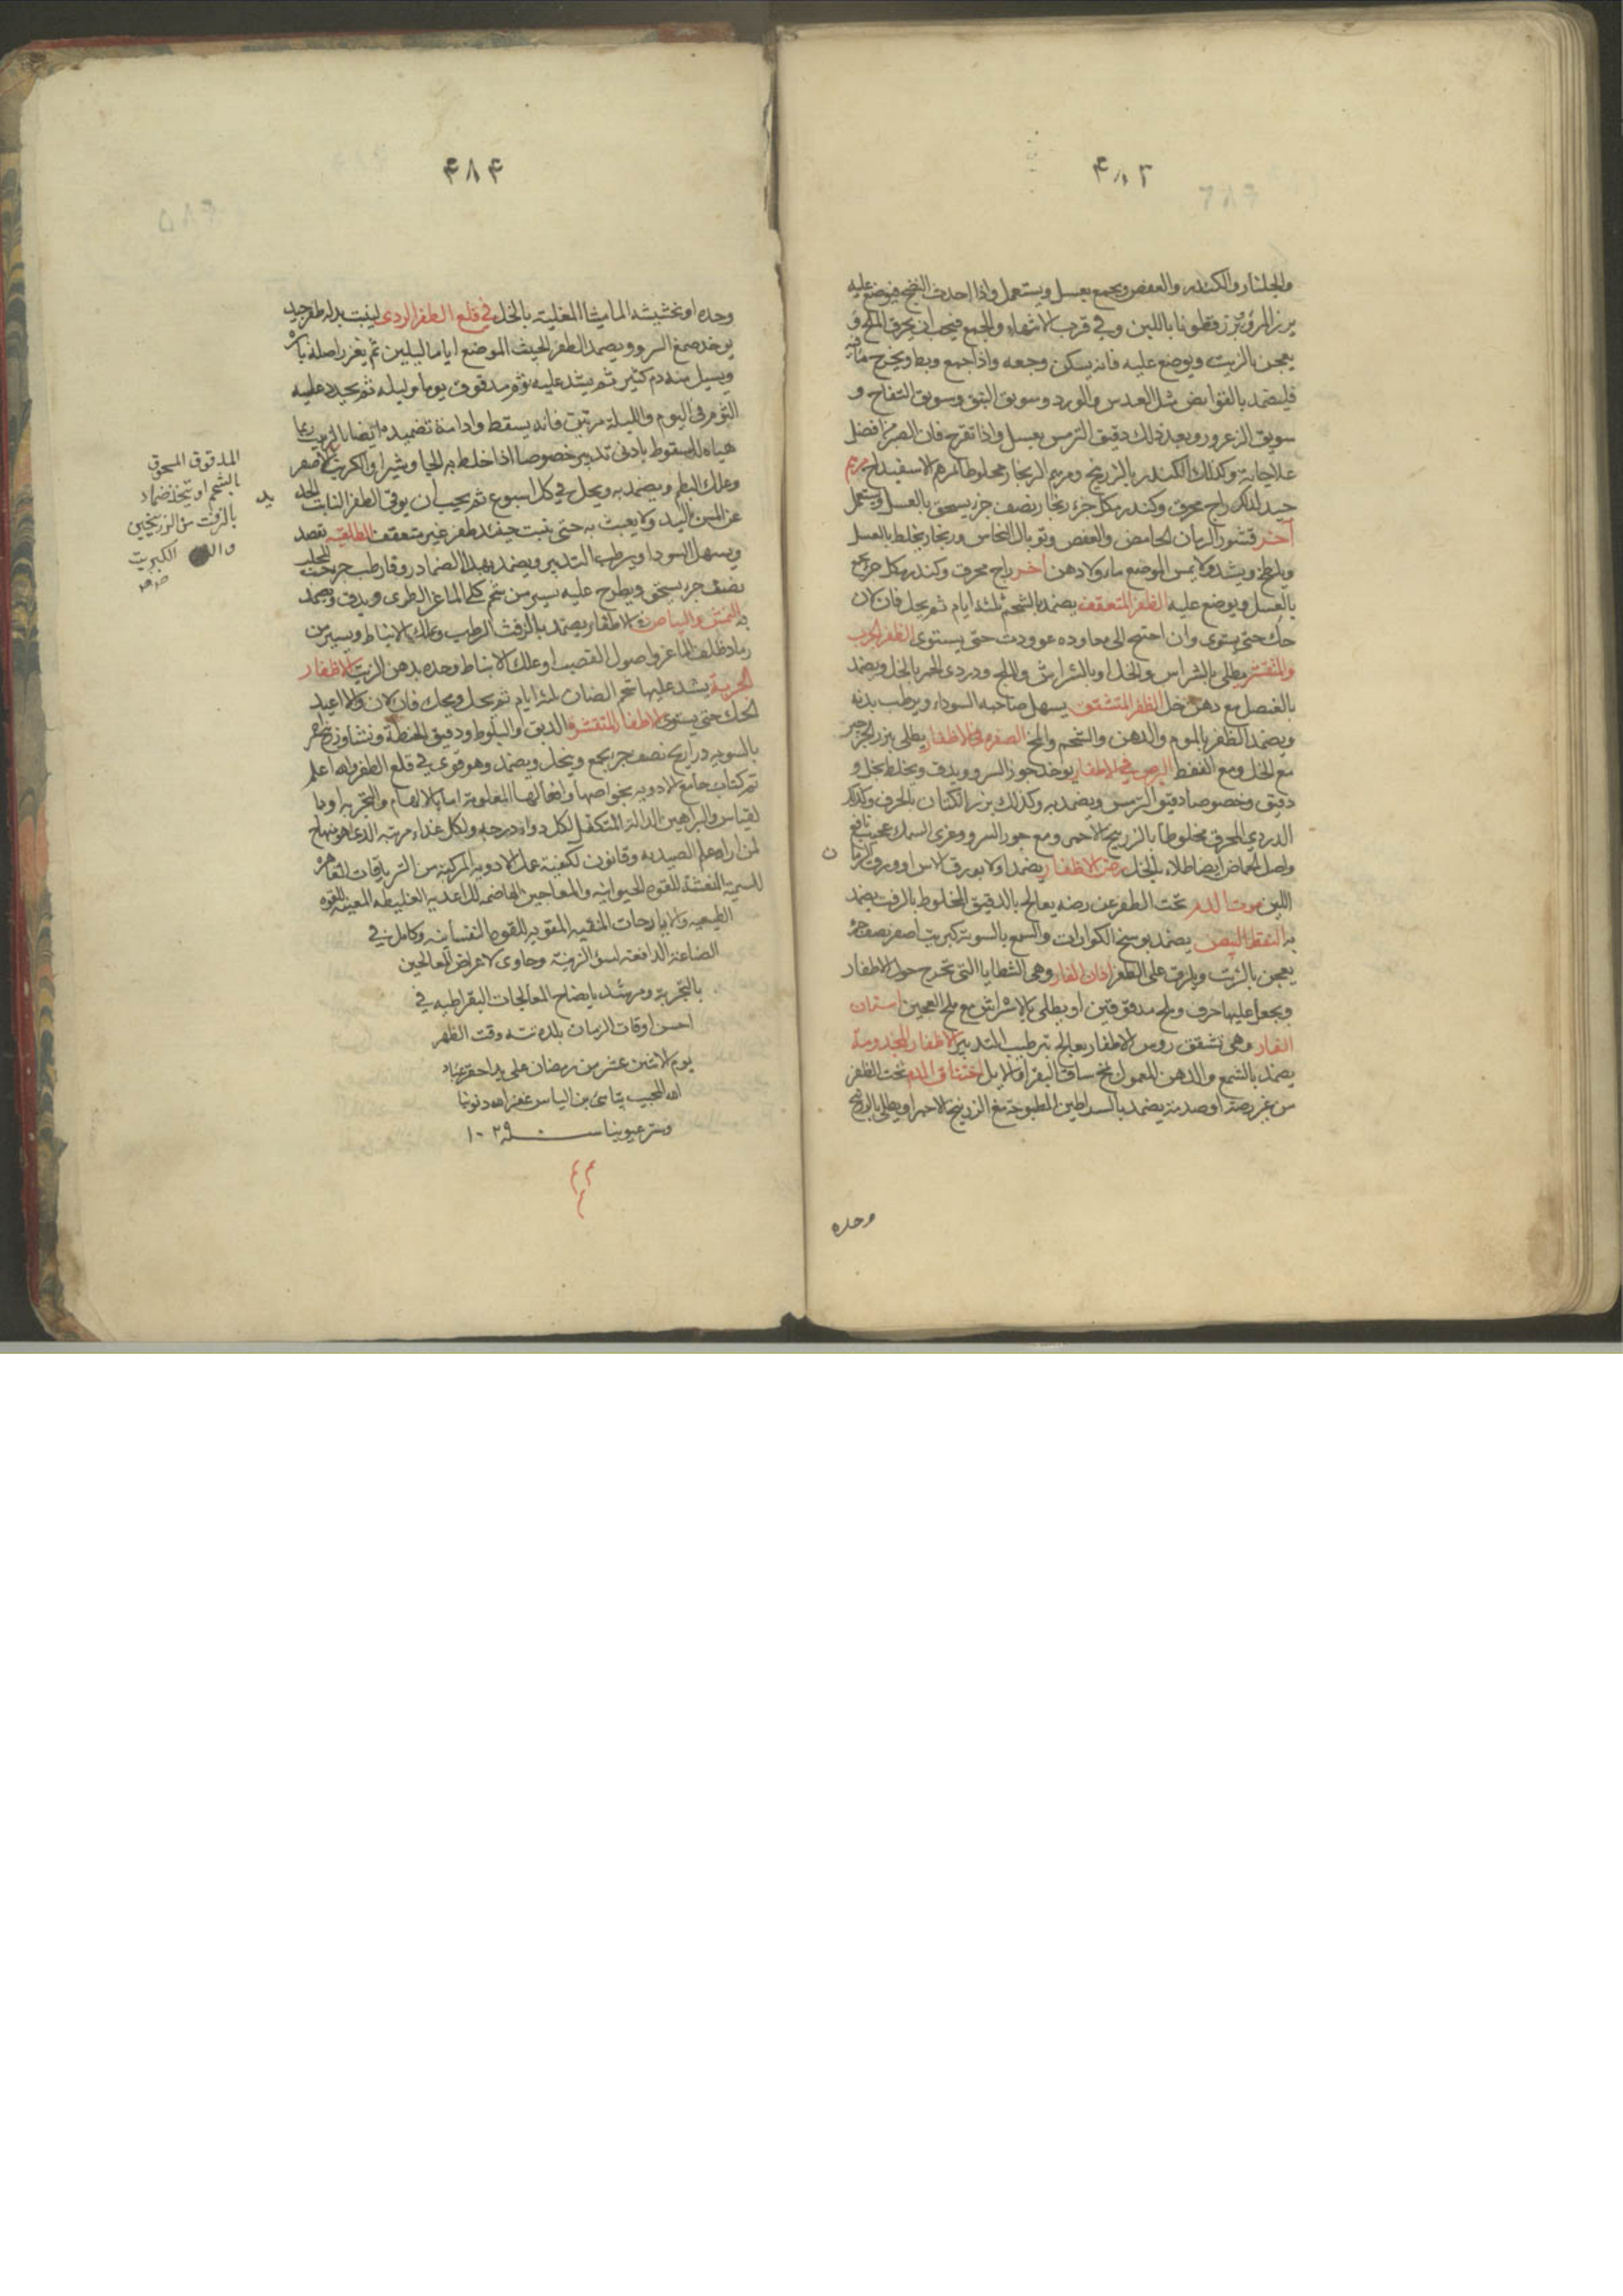 ۴۸۳
والجلنار والكندر والعفص ويجمع بعسل ويستعمل واذا احدث النضج فيوضع عليه
بزر المرو وبزر قطونا باللبن وفي قرب الانتهاء والجمع فيجب ان يحرق الملح و
يعجن بالزيت ويوضع عليه فانه يسكن وجعه واذا جمع وبط ويخرج ما فيه
فليضمد بالقوابض مثل العدس والورد وسويق النبق وسويق التفاح و
سويق الزعرور وبعد ذلك دقيق الترمس بعسل واذا تقرح فان الصبر من افضل
علاجاته وكذلك الكندر بالزرنيخ ومرهم الزنجار مخلوطا بمرهم الاسفيداج مرهم
جيد لذلك زاج محرق وكندر من كل جزء زنجار نصف جزء يسحق بالعسل ويستعمل
آخر قشور الرمان الحامض والعفص وتوبال النحاس وزنجار يخلط بالعسل
ويلطخ ويشد ولا يمس الموضع ماء ولا دهن آخر زاج محرق وكندر من كل جزء يجمع
بالعسل ويوضع عليه الظفر المتعقف يضمد بالشحم ثلثة ايام ثم يحل فان لان
حك حتى يستوى وان احتيج الى معاوده عوودت حتى يستوى الظفر الجرب
والمتقشر يطلى بالشراس والخل او بالشراش والملح ودردى الخمر بالخل ويضمد
بالعنصل مع دهن خل الظفر المتشقق يسهل صاحبه السوداء ويرطب بدنه
ويضمد الظفر بالموم والدهن والشحم والمخ الصفره في الاظفار يطلى ببزر الجرجير
مع الخل ومع النفط البرص في الاظفار يوخذ جوز السرو ويدق ويخلط بخل و
دقيق وخصوصا دقيق الترمس ويضمد به وكذلك بزر الكتان بالحرف وكذلك
الدردي المحرق مخلوطا بالزرنيخ الاحمر ومع جوز السرو وغرى السمك عجيب نافع
واصل الحماض ايضا طلاء بالخل رض الاظفار يضمد اولا بورق الاس او ورق الرمان
اللين موت الدم تحت الظفر عن رضه يعالج بالدقيق المخلوط بالزفت يضمد
به النقط البيض يضمد بوسخ الكوارات والشمع بالسويه كبريت اصفر نصف جزء
يعجن بالزيت ويلزق على الظفر اذان الفار وهي الشظايا التي تخرج حول الاظفار
ويجعل عليها حرف وملح مدقوقين او يطلى بالاشراش مع ملح العجين اسنان
الفار وهي تشقق روس الاظفار يعالج بترطيب التدبير الاظفار المجذومة
يضمد بالشمع والدهن المعمول بمخ ساق البقر او الابل اختناق الدم تحت الظفر
من غير رضة او صدمة يضمد بالسراطين المطبوخة مع الزرنيخ الاحمر او يطلى بالزرنيخ
وحده
۴۸۴
وحده او بخشيشه الماميثا المغلية بالخل في قلع الظفر الردى لينبت بدله ظفر جيد
يوخذ صمغ السرو ويضمد الظفر الخبيث الموضع اياما ليلين ثم يغرز اصله بابره
ويسيل منه دم كثير ثم يشد عليه ثوم مدقوق يوما وليله ثم يجدد عليه
الثوم في اليوم والليلة مرتين فانه يسقط وادامة تضميده ايضا بالزبيب ربما
هياه للسقوط بادنى تدبير خصوصا اذا خلط به الجاوشير او الكبريت الاصفر
وعلك البطم ويضمد به ويحل في كل اسبوع ثم يجب ان يوقى الظفر النابت الجديد
عن المس باليد ولا يعبث به حتى ينبت جيد ظفر غير متعقف الطلقيه يفصد
ويسهل السودا ويرطب التدبير ويضمد بهذا الضماد زوفا رطب جزء تحت
نصف جزء يسحق ويطرح عليه يسير من شحم كلى الماعز الطرى ويدق ويضمد
به النمش والبياض في الاظفار يضمد بالزفت الرطيب وعلك الانباط ويسير من
رماد ظلف الماعز واصول القصب او علك الانباط وحده بدهن الزيت الاظفار
الجربة يشد عليها شحم الضان ثلثة ايام ثم يحل ويحك فان لان والا اعيد
الحك حتى يستوى الاظفار المتقشره الدبق والبلوط ودقيق الحنطة ونشا وزرنيخ
بالسويه ذراريح نصف جزء يجمع وينخل ويضمد وهو قوى في قلع الظفر والله اعلم
تم كتاب جامع الادويه بخواصها وافعالها المعلومة اما بالالهام والتجربه او با
لقياس والبراهين الدالة المتكفل لكل دواء درجه ولكل غذاء مرتبه الذى هو منهاج
لمن اراد علم الصيدنه وقانون لكيفية عمل الادويه المركبة من الترياقات القاهرة
للسمية المنعشة للقوه الحيوانيه والمعاجين الهاضمه للاغذيه الغليظه المعينه للقوه
الطبيعيه والايارجات المنقيه المقويه للقوه النفسانيه وكامل في
الصناعة الدافعة لسوء الزينة وحاوى لاعراض المعالجين
بالتجربة ومرشد بايضاح المعالجات البقراطيه في
احسن اوقات الزمان بلده وقت الظهر
يوم الاثنين عشر من رمضان على يد احقر عباد
الله المجيب بن الياس غفر الله ذنوبنا
وستر عيوبنا سنه ١٠٢٩
المدقوق المسحوق
بالشحم او يتخذ ضماد
بالزفت من الزرنيخين
والكبريت